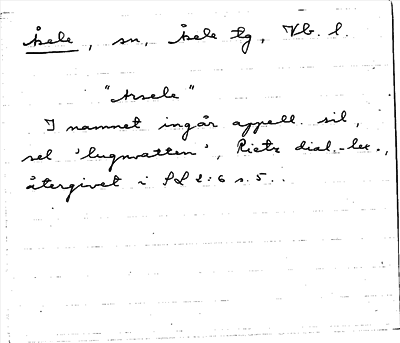 Åsele, sn, Åsele tg, Vb. l.
"Asele"
I namnet ingår appell. sil,
sel 'lugnvatten', Rietz dial.-lex.,
återgivet i SL 2:6 s. 5..